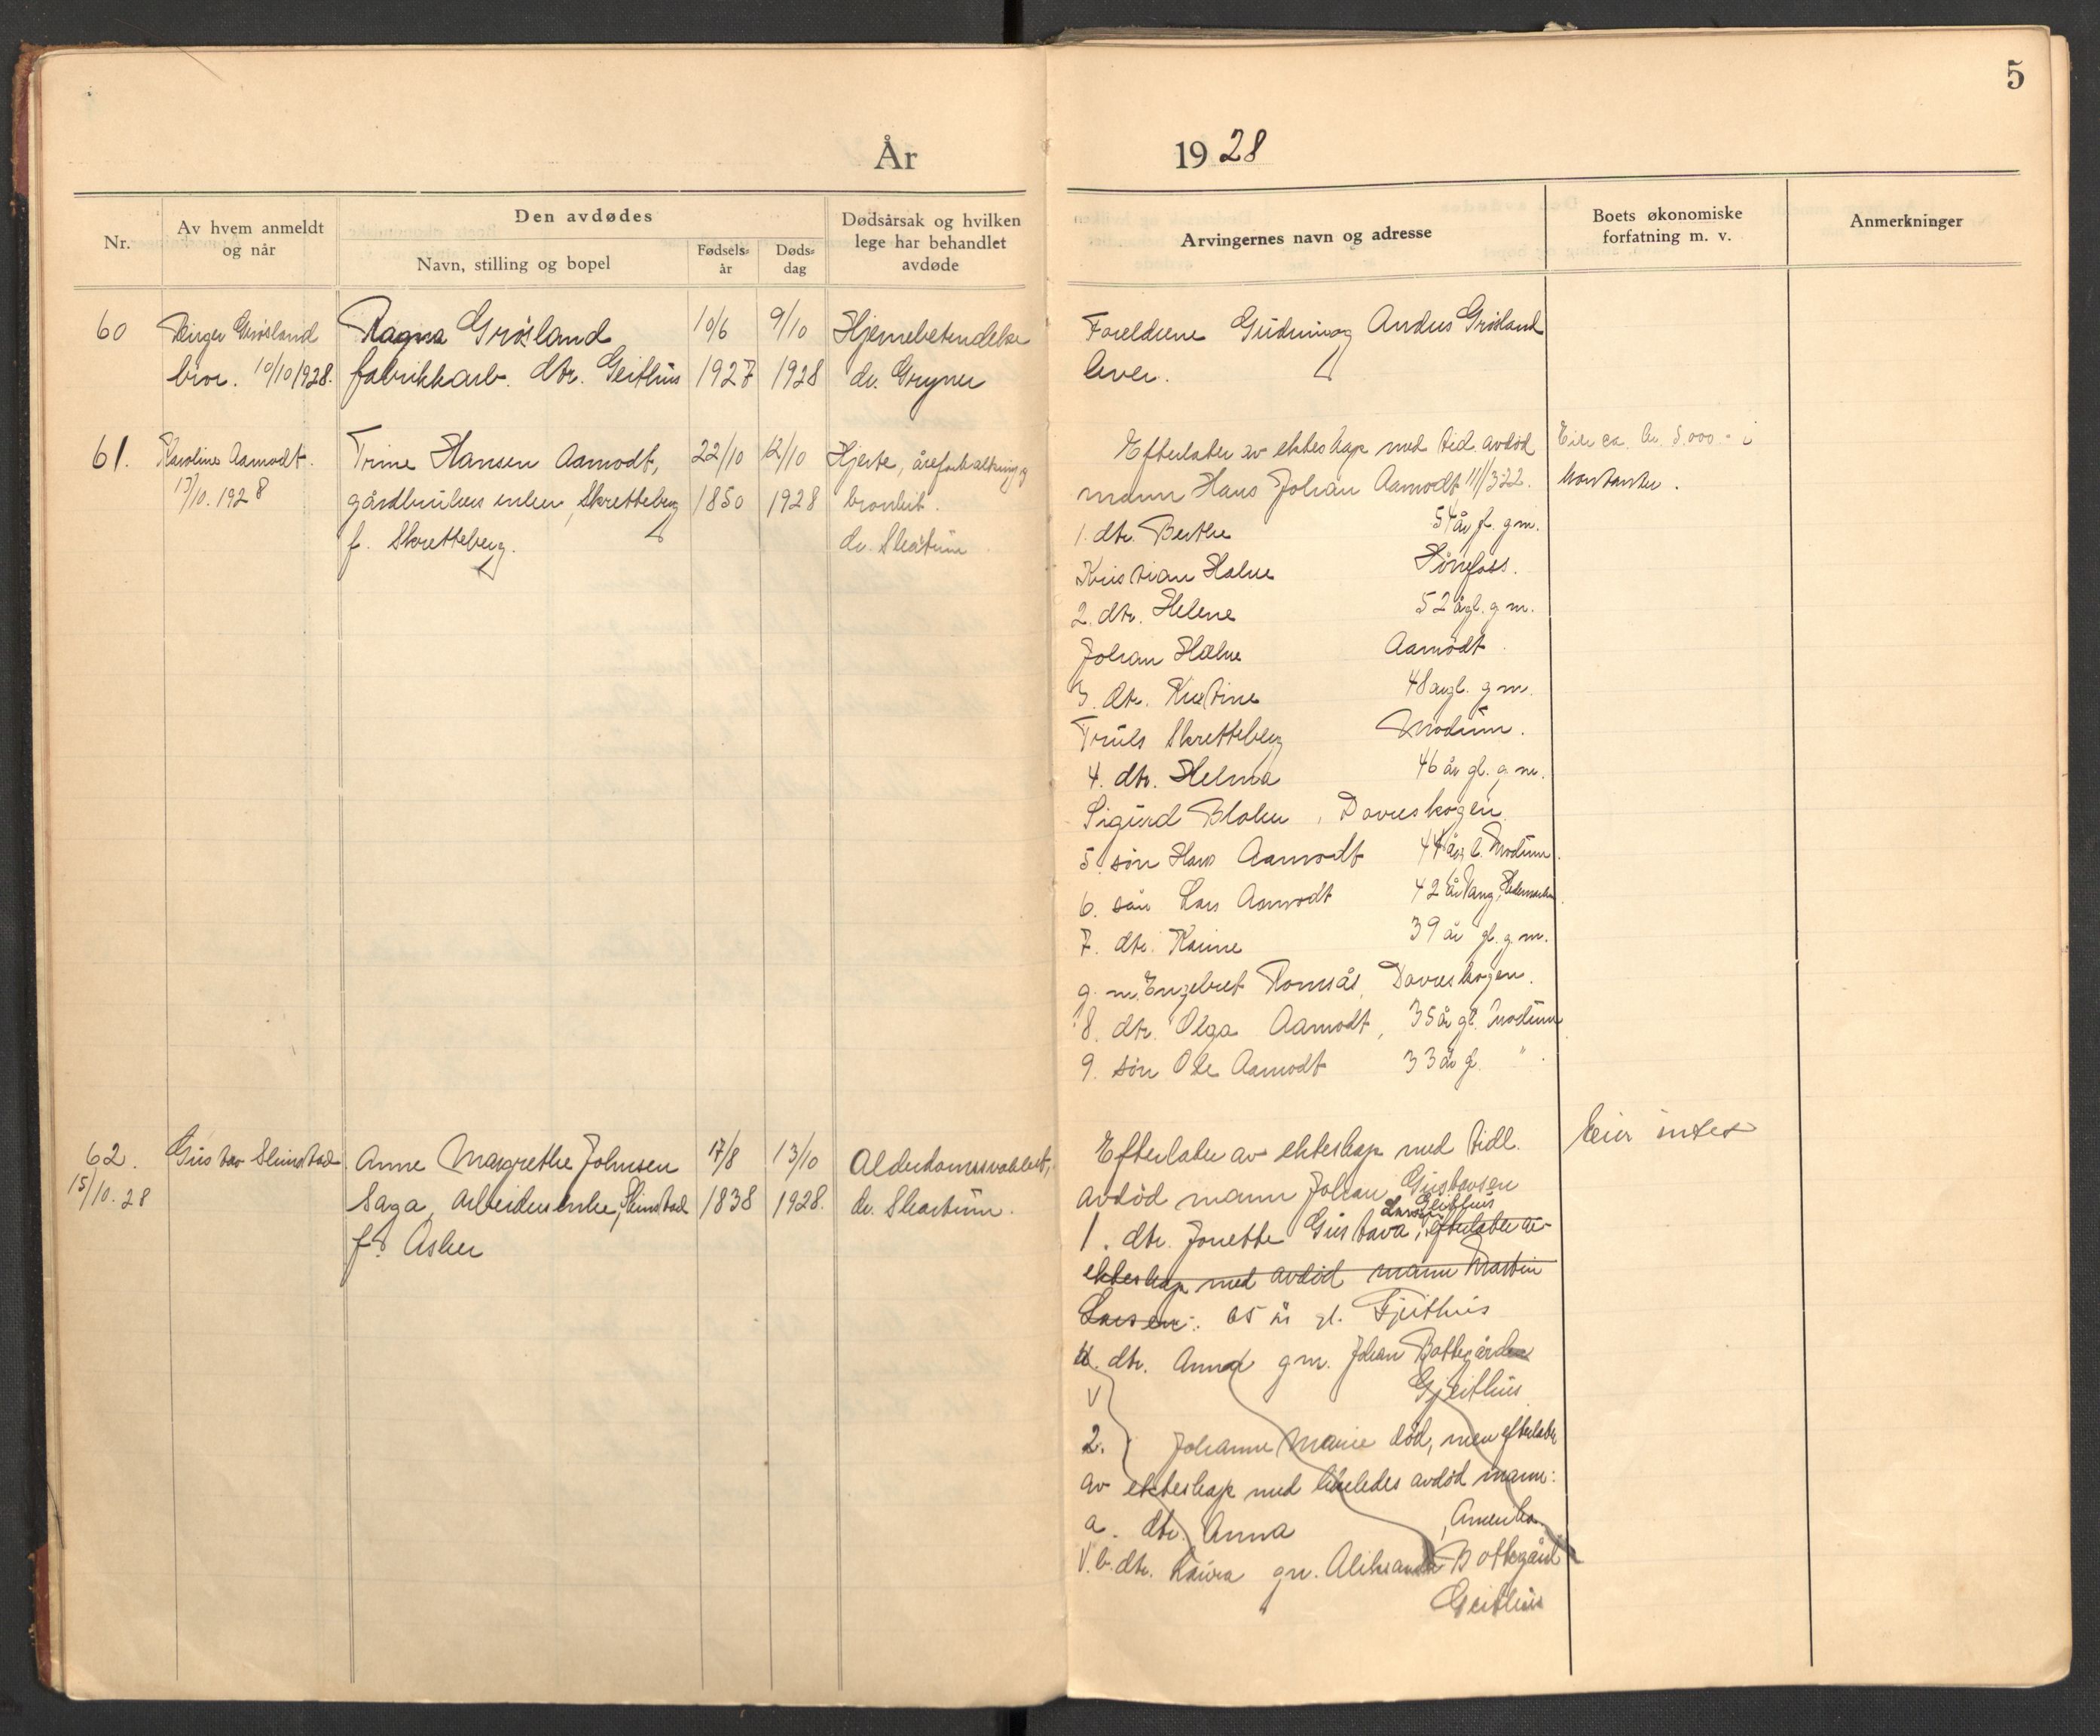 5
År 1928
Nr.
Av hvem anmeldt
og når
Den avdødes
Navn, stilling og bopel
Fødsels=
år
Døds=
dag
Dødsårsak og hvilken
lege har behandlet
avdøde
Arvingernes navn og adresse
Boets økonomiske
forfatning m. v.
Anmerkninger
60
Birger Grøsland
bror. 10/10 1928.
Ragna Grøsland
fabrikkarb. dtr. Geithus
10/6
1927
9/10
1928
Hjernebetendelse
dr. Gryner
Foreldrene Gudrun og Anders Grøsland
lever.
61.
Karoline Aamodt.
13/10. 1928
Trine Hansen Aamodt,
gårdbrukers enke, Skretteberg
f. Skretteberg.
22/10
1850
12/10
1928
Hjerte, åreforkalkning og
bronkit.
dr. Skatum
Efterlater av ekteskap med tid. avdød
mann Hans Johan Aamodt 11/3 22.
1. dtr. Berthe 54 år g. gm.
Kristian Holue Hønefoss.
2. dtr. Helene 52 år gl. g m.
Johan Holue Aamodt.
3. dtr. Kristine 48 år gl. g m.
Truls Skretteberg Modum.
4. dtr. Helma 46 år gl. g. m.
Sigurd Bloker, Dovreskogen.
5. søn Hans Aamodt 44 år g l. Modum.
6. søn Lars Aamodt 42 år Vang, Hedemarken.
7. dtr. Karine 39 år gl. g. m.
g. m. Engebret Romsås, Dovreskogen.
8. dtr. Olga Aamodt, 35 år gl. Modum
9. søn Ole Aamodt 33 år g. " .
Eier ca. kr. 5.000.- i
kontanter.
62.
15/10. 28
Gustav Skinstad
Anne Margrethe Johnsen
Saga, arbeiderenke, Skinstad
f. Asker
17/8
1838
13/10
1928.
Alderdomssvakhet,
dr. Skatum.
Efterlater av ekteskap med tidl.
avdød mann Johan Gustavsen
Larsen Geithus
1. dtr. Jonette Gustava, efterlater av
ekteskap med avdød mann Martin
Larsen: 65 år gl. Gjeithus
a. dtr. Anna g m. Johan Bottegården
V Gjeithus
2. Johanne Marie død, men efterlater
av ekteskap med likeledes avdød mann:
a. dtr. Anna, Amerika.
V. b. dtr. Laura gm. Aleksander Bottegård
Geithus
Eier intet